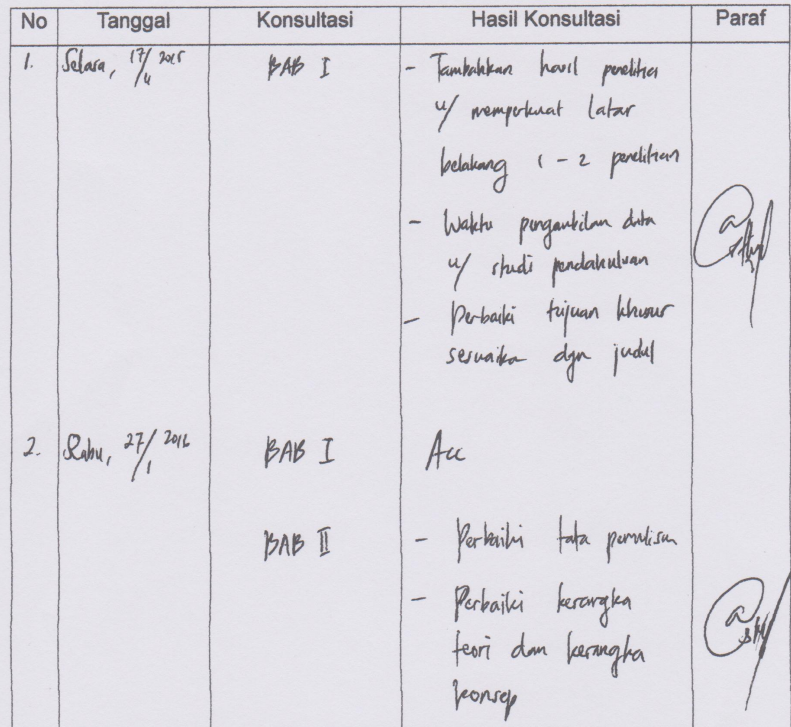 No Tanggal Konsultasi Hasil Konsultasi Paraf
1. Selasa, 17/11 2015 BAB I - Tambahkan hasil penelitian
u/ memperkuat latar
belakang 1 - 2 penelitian
- Waktu pengambilan data
u/ studi pendahuluan
- Perbaiki tujuan khusus
sesuaikan dgn judul
2. Rabu, 27/1 2016 BAB I Acc
BAB II - Perbaiki tata penulisan
- Perbaiki kerangka
teori dan kerangka
konsep